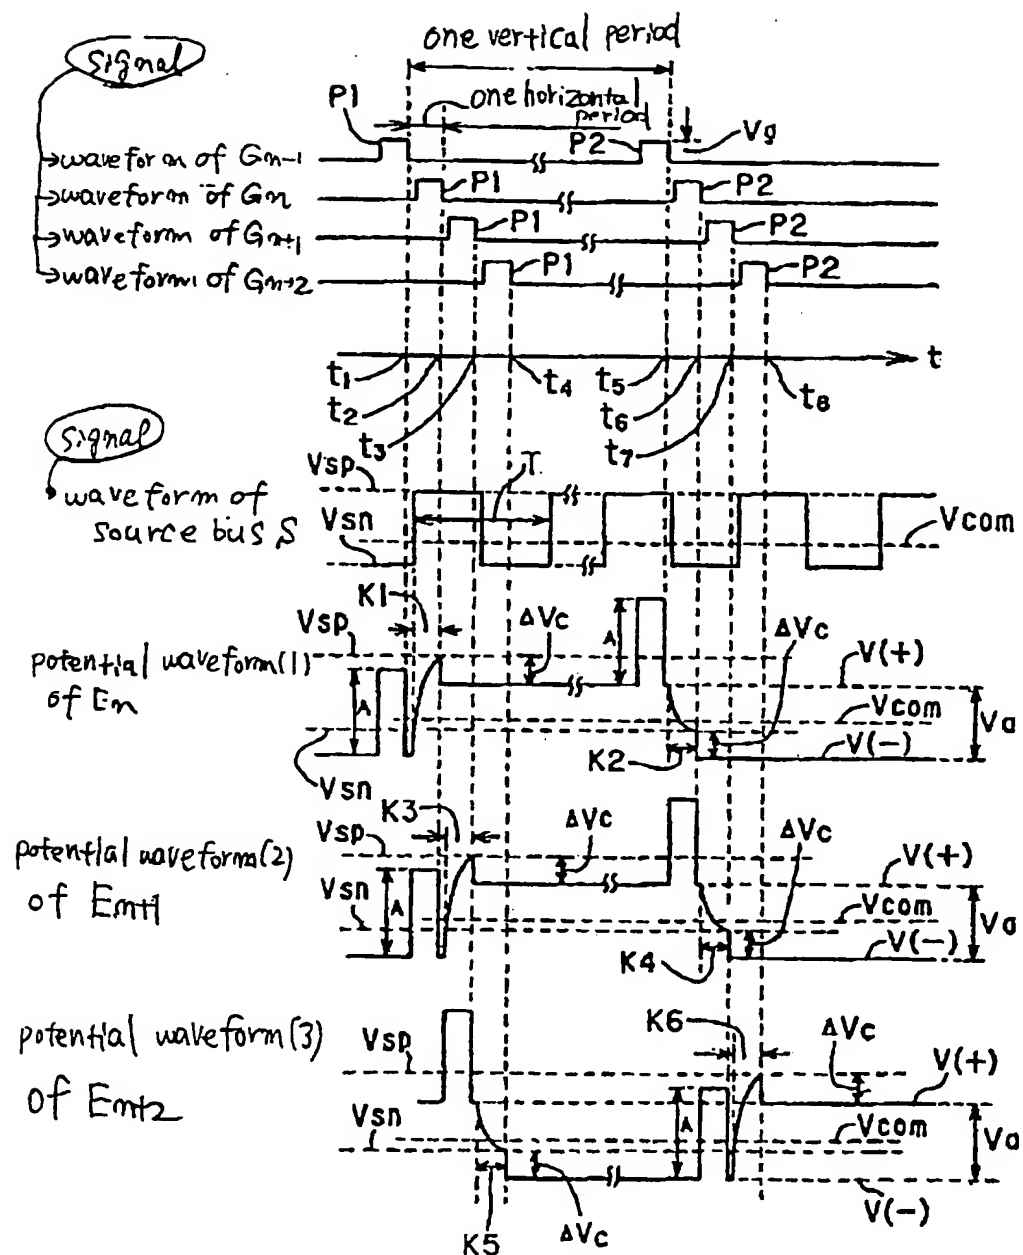 one vertical period
signal
P1
one horizontal
period
P2
Vg
waveform of Gn-1
waveform of Gn
P1
P2
waveform of Gn+1
P1
P2
waveform of Gn+2
P1
P2
t
t1
t2
t3
t4
t5
t6
t7
t8
signal
Vsp
T
waveform of
source bus S
Vsn
Vcom
K1
Vsp
ΔVc
A
ΔVc
potential waveform(1)
of En
A
V(+)
Vcom
Va
V(-)
K2
Vsn
K3
Vsp
ΔVc
ΔVc
potential waveform(2)
of En+1
V(+)
Vsn
A
Vcom
Va
V(-)
K4
potential waveform(3)
of En+2
K6
Vsp
ΔVc
V(+)
Vsn
A
Vcom
Va
K5
ΔVc
V(-)